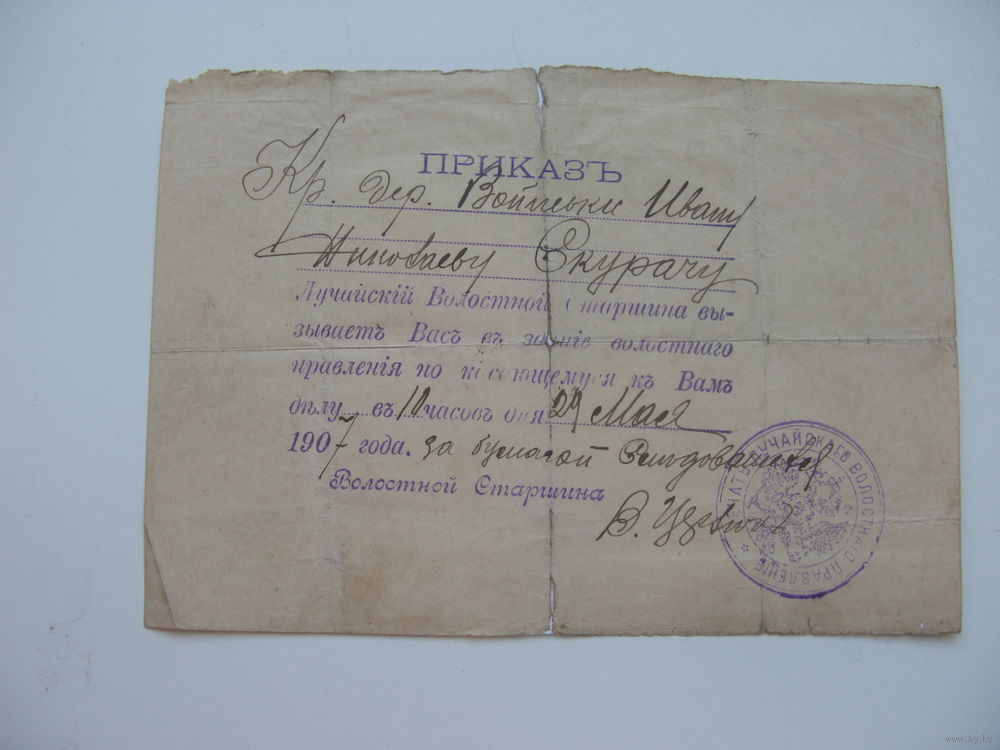 ПРИКАЗЪ
Кр. дер. Войтеьки Ивану
Николаеву Скурачу
Лучайскій Волостной Старшина вы-
зываетъ Васъ въ зданіе волостнаго
правленія по касающемуся къ Вамъ
дѣлу въ 10 часовъ дня 29 Мая
1907 года. за бумагой
Волостной Старшина
В.
ПЕЧАТЬ ЛУЧАЙСКАГО ВОЛОСТНАГО ПРАВЛЕНІЯ
www.ay.by